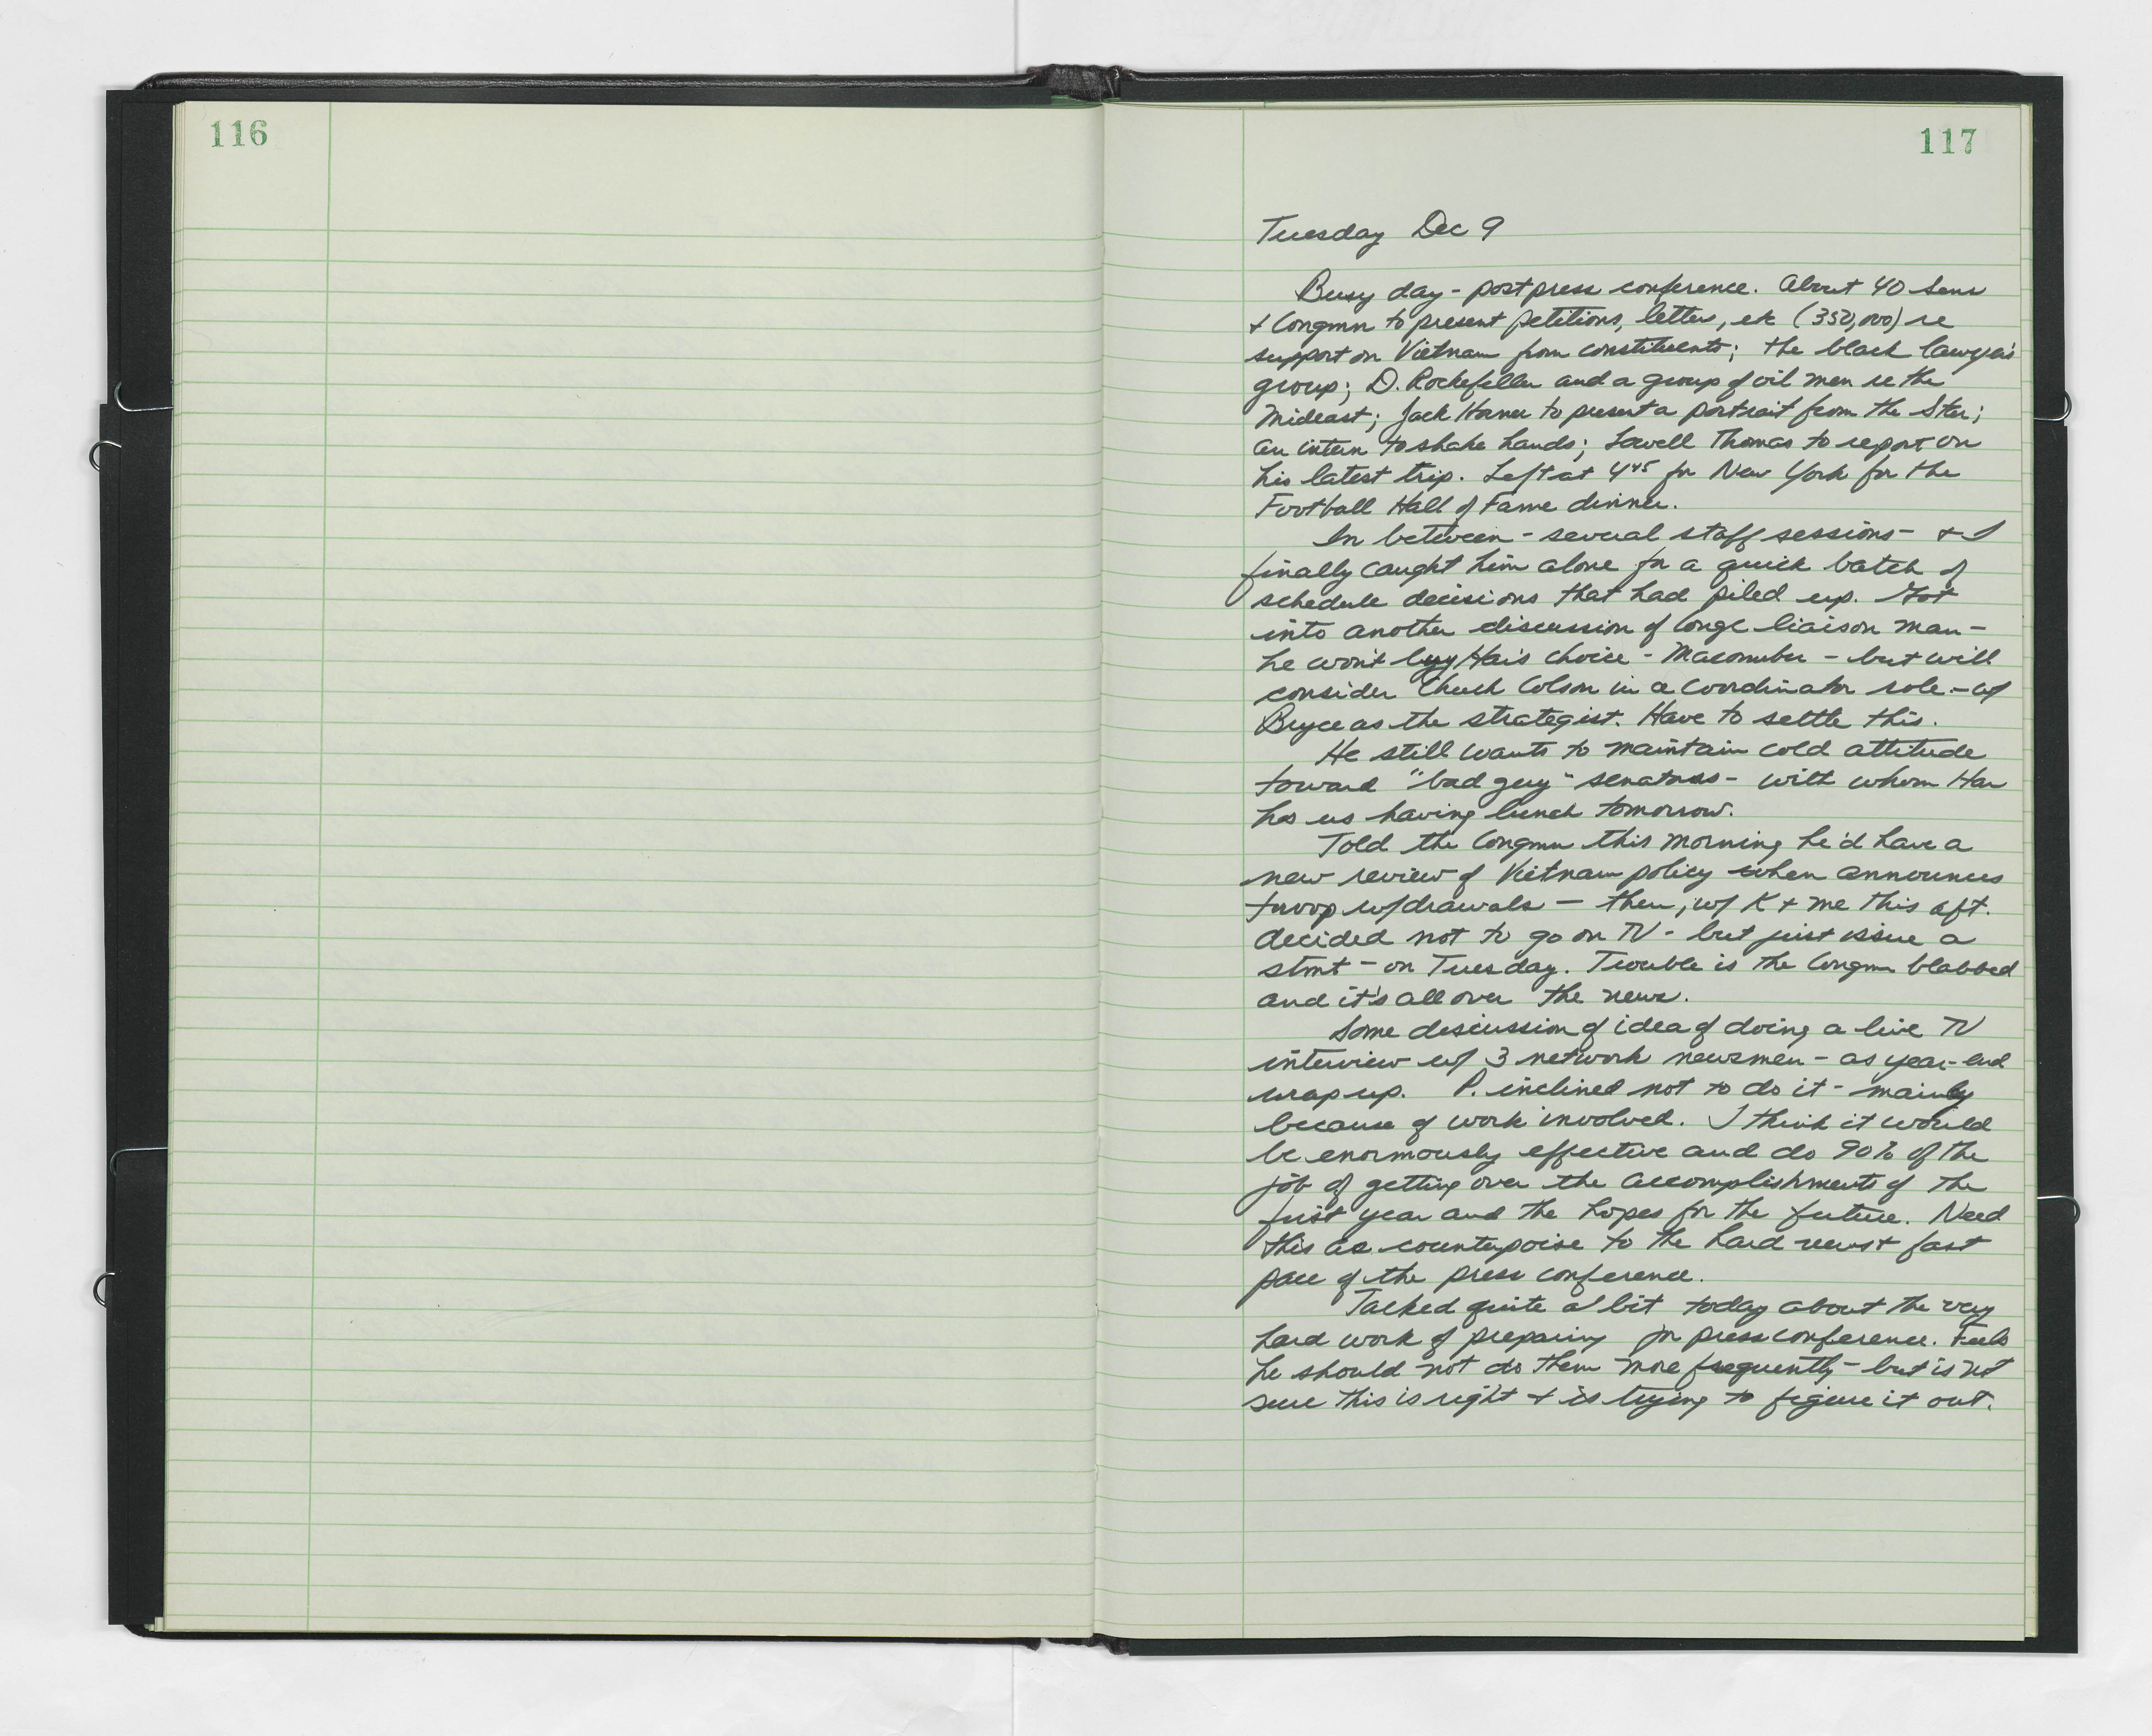 116
117
Tuesday Dec 9
Busy day - post press conference. About 40 Sens
+ Congmn to present petitions, letters, etc (350,000) re
support on Vietnam from constituents; the black lawyers
group; D. Rockefeller and a group of oil men re the
Mideast; Jack Horner to present a portrait from the Star;
an intern to shake hands; Lowell Thomas to report on
his latest trip. Left at 4 45 for New York for the
Football Hall of Fame dinner.
In between - several staff sessions - + I
finally caught him alone for a quick batch of
schedule decisions that had piled up. Got
into another discussion of Congl liaison man -
he won't buy Har's choice - Macomber - but will
consider Chuck Colson in a coordinator role - w/
Bryce as the strategist. Have to settle this.
He still wants to maintain cold attitude
toward "bad guy" senators - with whom Har
has us having lunch tomorrow.
Told the Congmn this morning he'd have a
new review of Vietnam policy when announces
troop w/drawals - then, w/ K + me this aft.
decided not to go on TV - but just issue a
stmt - on Tuesday. Trouble is the Congmn blabbed
and it's all over the news.
Some discussion of idea of doing a live TV
interview w/ 3 network newsmen - as year-end
wrap up. P. inclined not to do it - mainly
because of work involved. I think it would
be enormously effective and do 90% of the
job of getting over the accomplishments of the
first year and the hopes for the future. Need
this as counterpoise to the hard news + fast
pace of the press conference.
Talked quite a bit today about the very
hard work of preparing for press conference. Feels
he should not do them more frequently - but is not
sure this is right + is trying to figure it out.